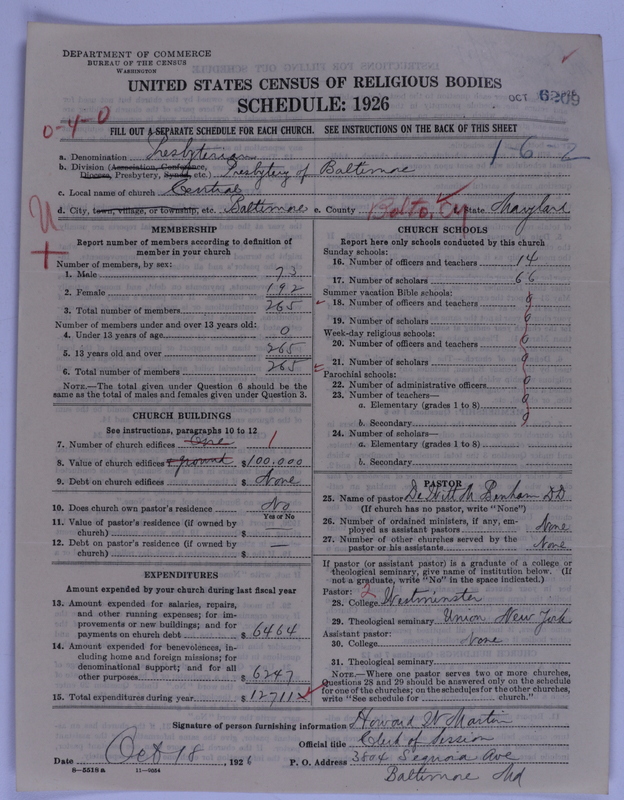 DEPARTMENT OF COMMERCE
BUREAU OF THE CENSUS
WASHINGTON
UNITED STATES CENSUS OF RELIGIOUS BODIES
SCHEDULE: 1926
OCT 6209
0-4-0
FILL OUT A SEPARATE SCHEDULE FOR EACH CHURCH. SEE INSTRUCTIONS ON THE BACK OF THIS SHEET
1-6-2
a. Denomination Presbyterian
b. Division (Association, Conference,
Diocese, Presbytery, Synod, etc.) Presbytery of Baltimore
c. Local name of church Central
d. City, town, village, or township, etc. Baltimore e. County Balto. Cy State Maryland
MEMBERSHIP
Report number of members according to definition of
member in your church
Number of members, by sex:
1. Male 73
2. Female 192
3. Total number of members 265
Number of members under and over 13 years old:
4. Under 13 years of age 0
5. 13 years old and over 265
6. Total number of members 265
NOTE.—The total given under Question 6 should be the
same as the total of males and females given under Question 3.
CHURCH BUILDINGS
See instructions, paragraphs 10 to 12
7. Number of church edifices One 1
8. Value of church edifices & ground $100,000
9. Debt on church edifices $ None
10. Does church own pastor's residence No
Yes or No
11. Value of pastor's residence (if owned by
church) $ —
12. Debt on pastor's residence (if owned by
church) $ —
EXPENDITURES
Amount expended by your church during last fiscal year
13. Amount expended for salaries, repairs,
and other running expenses; for im-
provements or new buildings; and for
payments on church debt $6464
14. Amount expended for benevolences, in-
cluding home and foreign missions; for
denominational support; and for all
other purposes $6247
15. Total expenditures during year $12711
CHURCH SCHOOLS
Report here only schools conducted by this church
Sunday schools:
16. Number of officers and teachers 14
17. Number of scholars 66
Summer vacation Bible schools:
18. Number of officers and teachers 0
19. Number of scholars 0
Week-day religious schools:
20. Number of officers and teachers 0
21. Number of scholars 0
Parochial schools:
22. Number of administrative officers 0
23. Number of teachers—
a. Elementary (grades 1 to 8) 0
b. Secondary 0
24. Number of scholars—
a. Elementary (grades 1 to 8)
b. Secondary
PASTOR
25. Name of pastor De Witt M. Benham DD
(If church has no pastor, write "None")
26. Number of ordained ministers, if any, em-
ployed as assistant pastors None
27. Number of other churches served by the
pastor or his assistants None
If pastor (or assistant pastor) is a graduate of a college or
theological seminary, give name of institution below. (If
not a graduate, write "No" in the space indicated.)
Pastor: 2
28. College Westminster
29. Theological seminary Union New York
Assistant pastor:
30. College None
31. Theological seminary
NOTE.—Where one pastor serves two or more churches,
Questions 28 and 29 should be answered only on the schedule
for one of the churches; on the schedules for the other churches,
write "See schedule for ........ church."
Signature of person furnishing information Howard W Martin
Official title Clerk of Session
Date Oct 18, 1926 P. O. Address 3804 Sequoia Ave
8—5518 a 11—9054
Baltimore Md